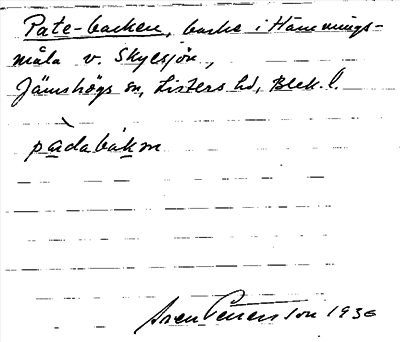 Pate-backen, backe i Hämmings-
måla v. Skyesjön,
Jämshögs sn, Listers hd, Blek. l.
pàdabakən
Sven Petersson 1936